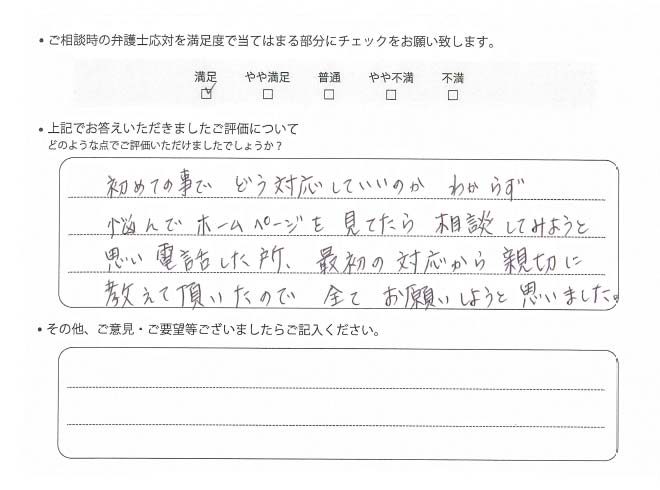 • ご相談時の弁護士応対を満足度で当てはまる部分にチェックをお願い致します。
満足 やや満足 普通 やや不満 不満
☑ □ □ □ □
• 上記でお答えいただきましたご評価について
どのような点でご評価いただけましたでしょうか?
初めての事で どう対応していいのか わからず
悩んで ホームページを 見てたら 相談してみようと
思い 電話した所、最初の対応から 親切に
教えて頂いたので 全て お願いしようと思いました。
• その他、ご意見・ご要望等ございましたらご記入ください。